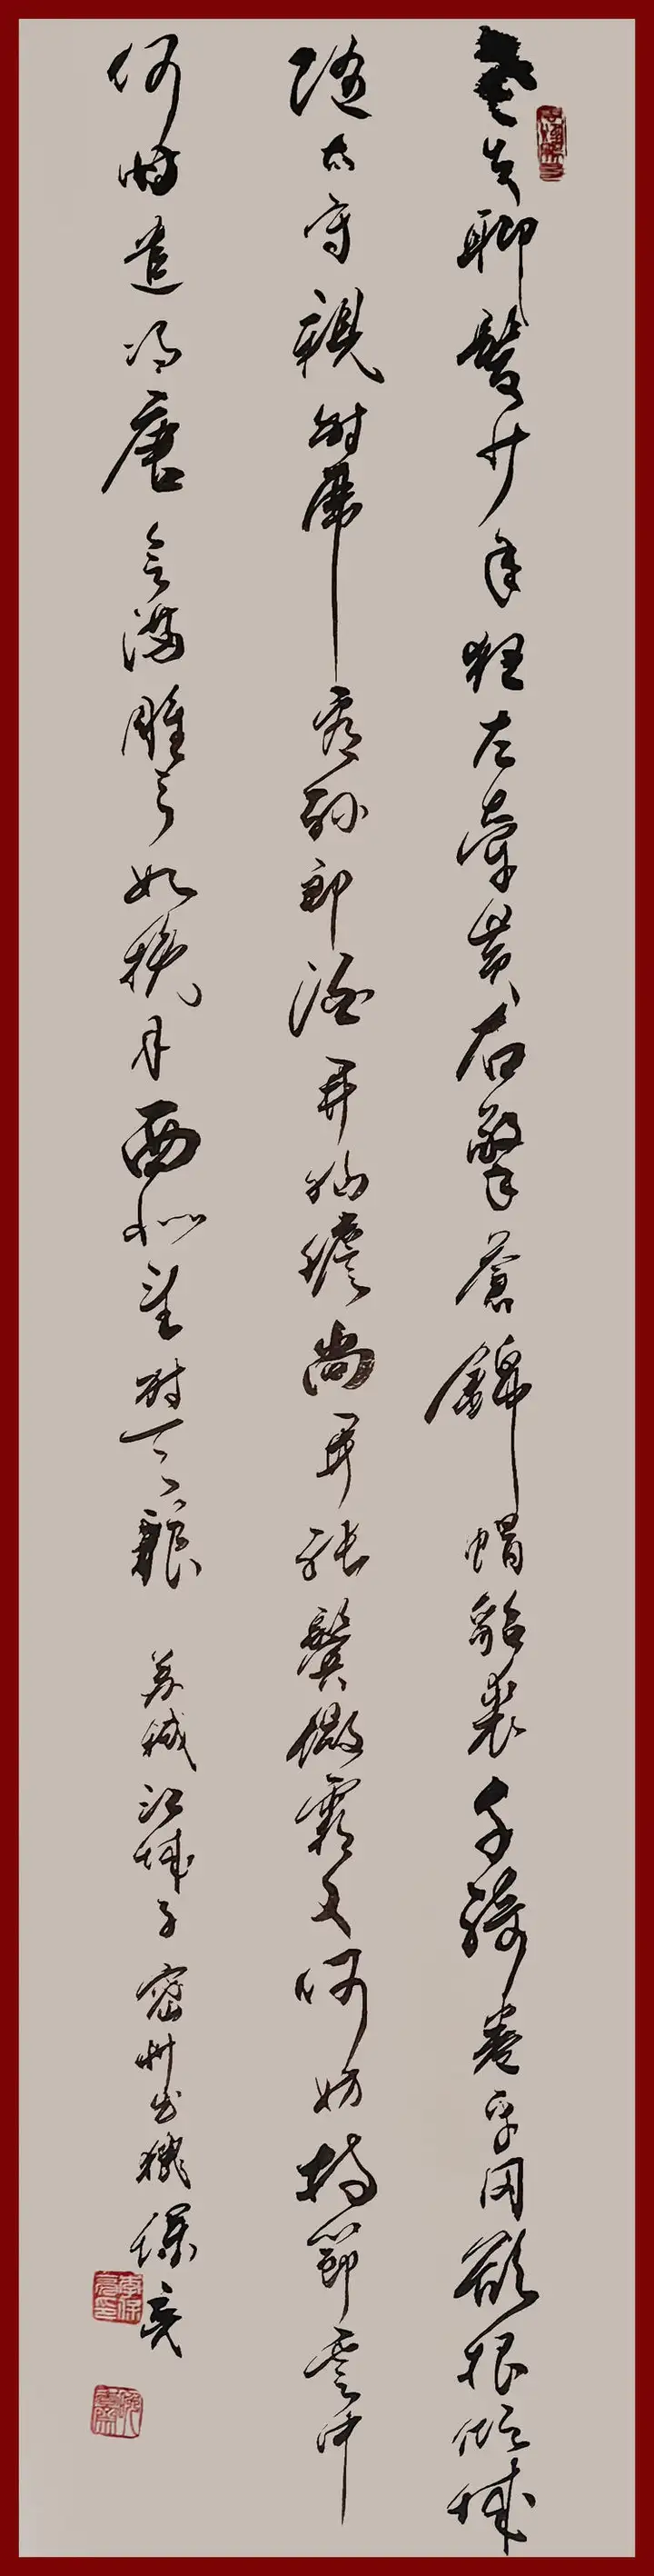 老夫聊發少年狂左牽黃右擎蒼錦帽貂裘千騎卷平岡欲報傾城
隨太守親射虎看孫郎酒開胸膽尚開張鬢微霜又何妨持節雲中
何時遣馮唐會滿雕弓如挽月西北望射天狼 蘇軾江城子密州出獵 保亮